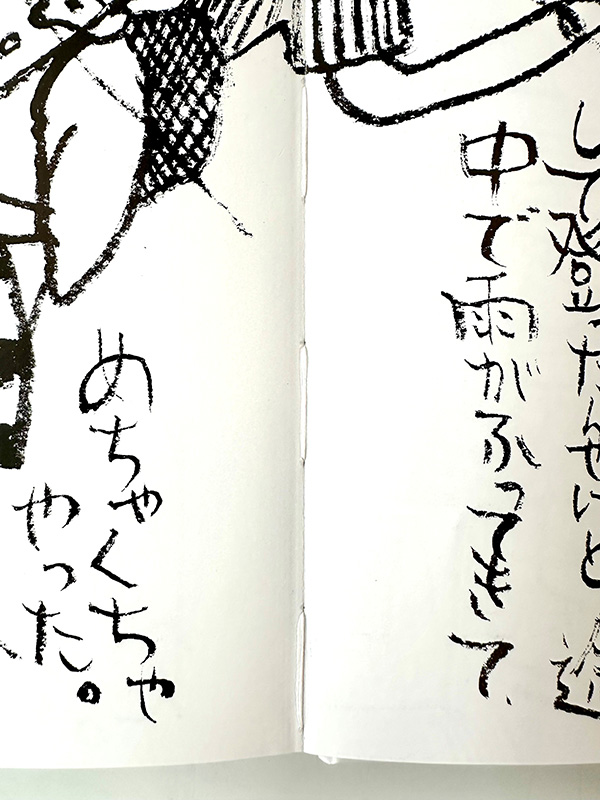 して登ったんやけど 途
中で雨がふってきて、
めちゃくちゃ
やった。